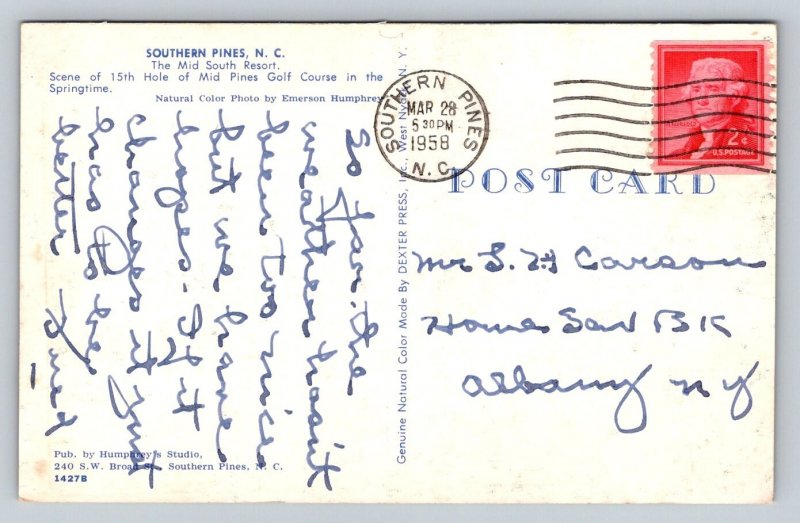 SOUTHERN PINES, N. C.
The Mid South Resort.
Scene of 15th Hole of Mid Pines Golf Course in the
Springtime.
Natural Color Photo by Emerson Humphrey
So far the
weather hasn't
been too nice
but we have
hopes. If it
changes it just
has to be
better
Fred
Pub. by Humphrey's Studio,
240 S.W. Broad St., Southern Pines, N. C.
1427B
Genuine Natural Color Made By DEXTER PRESS, Inc., West Nyack, N. Y.
SOUTHERN PINES
MAR 28
5 30 PM
1958
N. C.
2¢
U.S. POSTAGE
POST CARD
Mr S. H Carson
Home Sav B K
Albany N Y